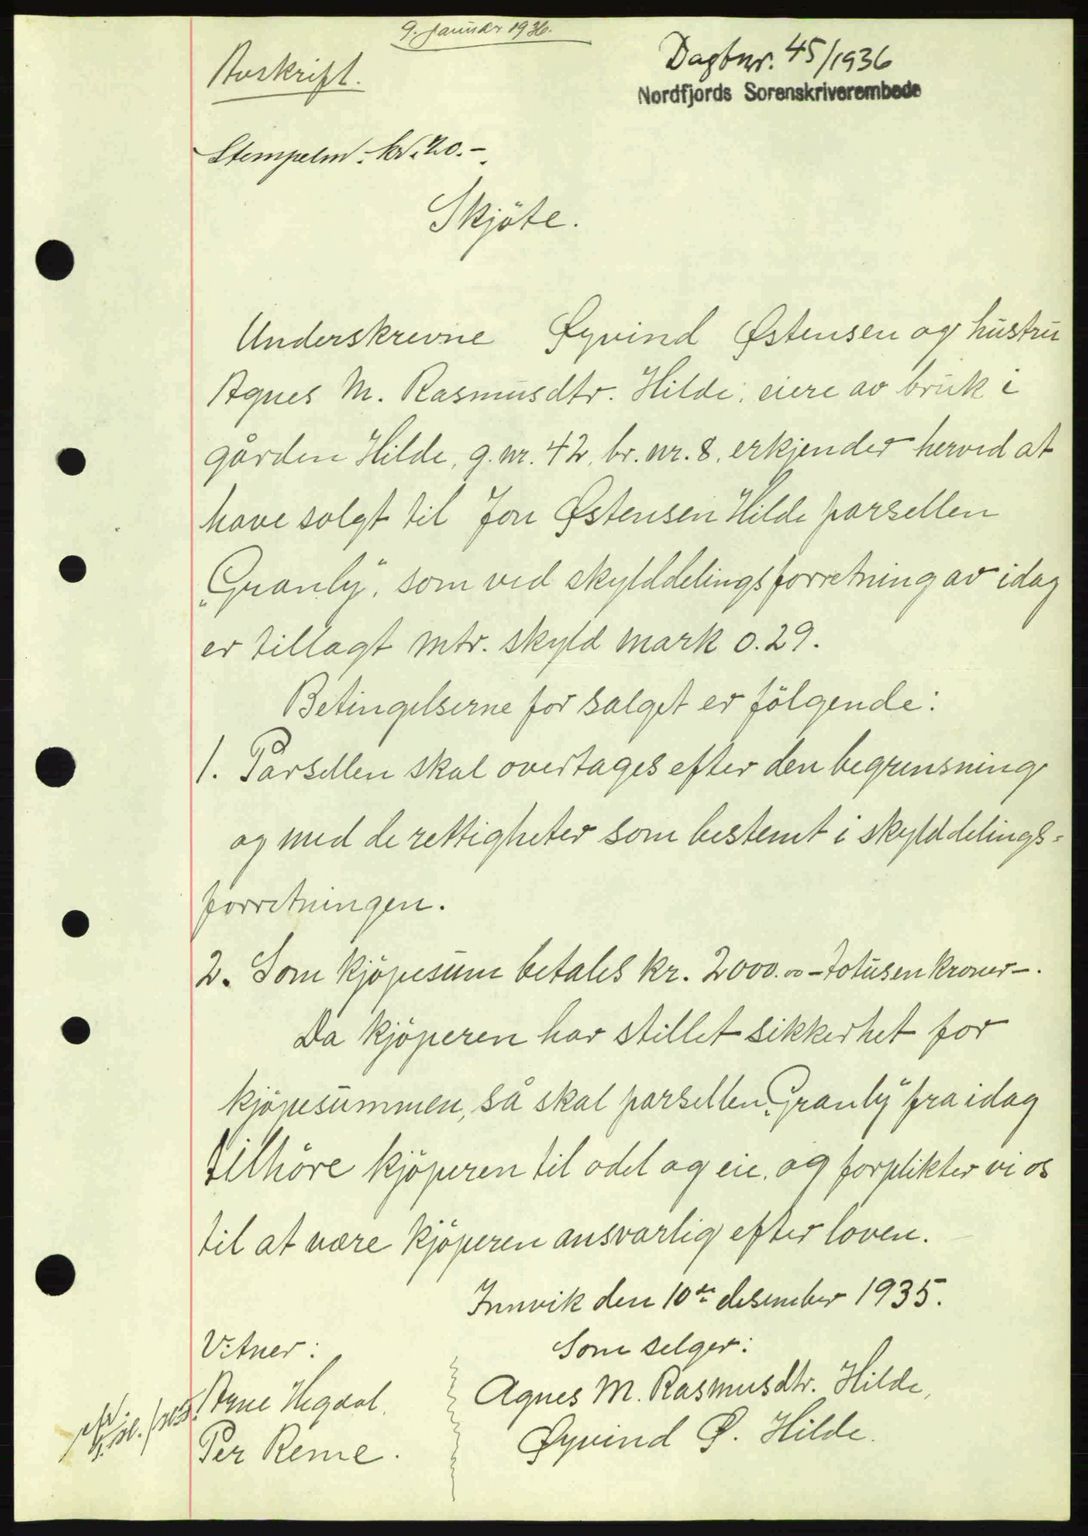 9. januar 1936.
Avskrift.
Dagbnr. 45/1936
Nordfjords Sorenskriverembede
Stempelm. kr. 20.-.
Skjöte.
Underskrevne Øyvind Østensen og hustru
Agnes M. Rasmusdtr. Hilde, eiere av bruk i
gården Hilde, g.nr. 42, br.nr. 8, erkjender herved at
have solgt til Jon Østensen Hilde parsellen
„Granly“, som ved skylddelingsforretning av idag
er tillagt mtr. skyld mark 0.29.
Betingelserne for salget er fölgende:
1. Parsellen skal overtages efter den begrensning
og med de rettigheter som bestemt i skylddelings-
forretningen.
2. Som kjöpesum betales kr. 2000.00 - totusen kroner -.
Da kjöperen har stillet sikkerhet for
kjöpesummen, så skal parsellen „Granly“ fra idag
tilhöre kjöperen til odel og eie, og forplikter vi os
til at være kjöperen ansvarlig efter loven.
Innvik den 10de desember 1935.
Vitner:
Som selger:
Arne Hegdal.
Agnes M. Rasmusdtr. Hilde,
Per Reme.
Øyvind Ø. Hilde.